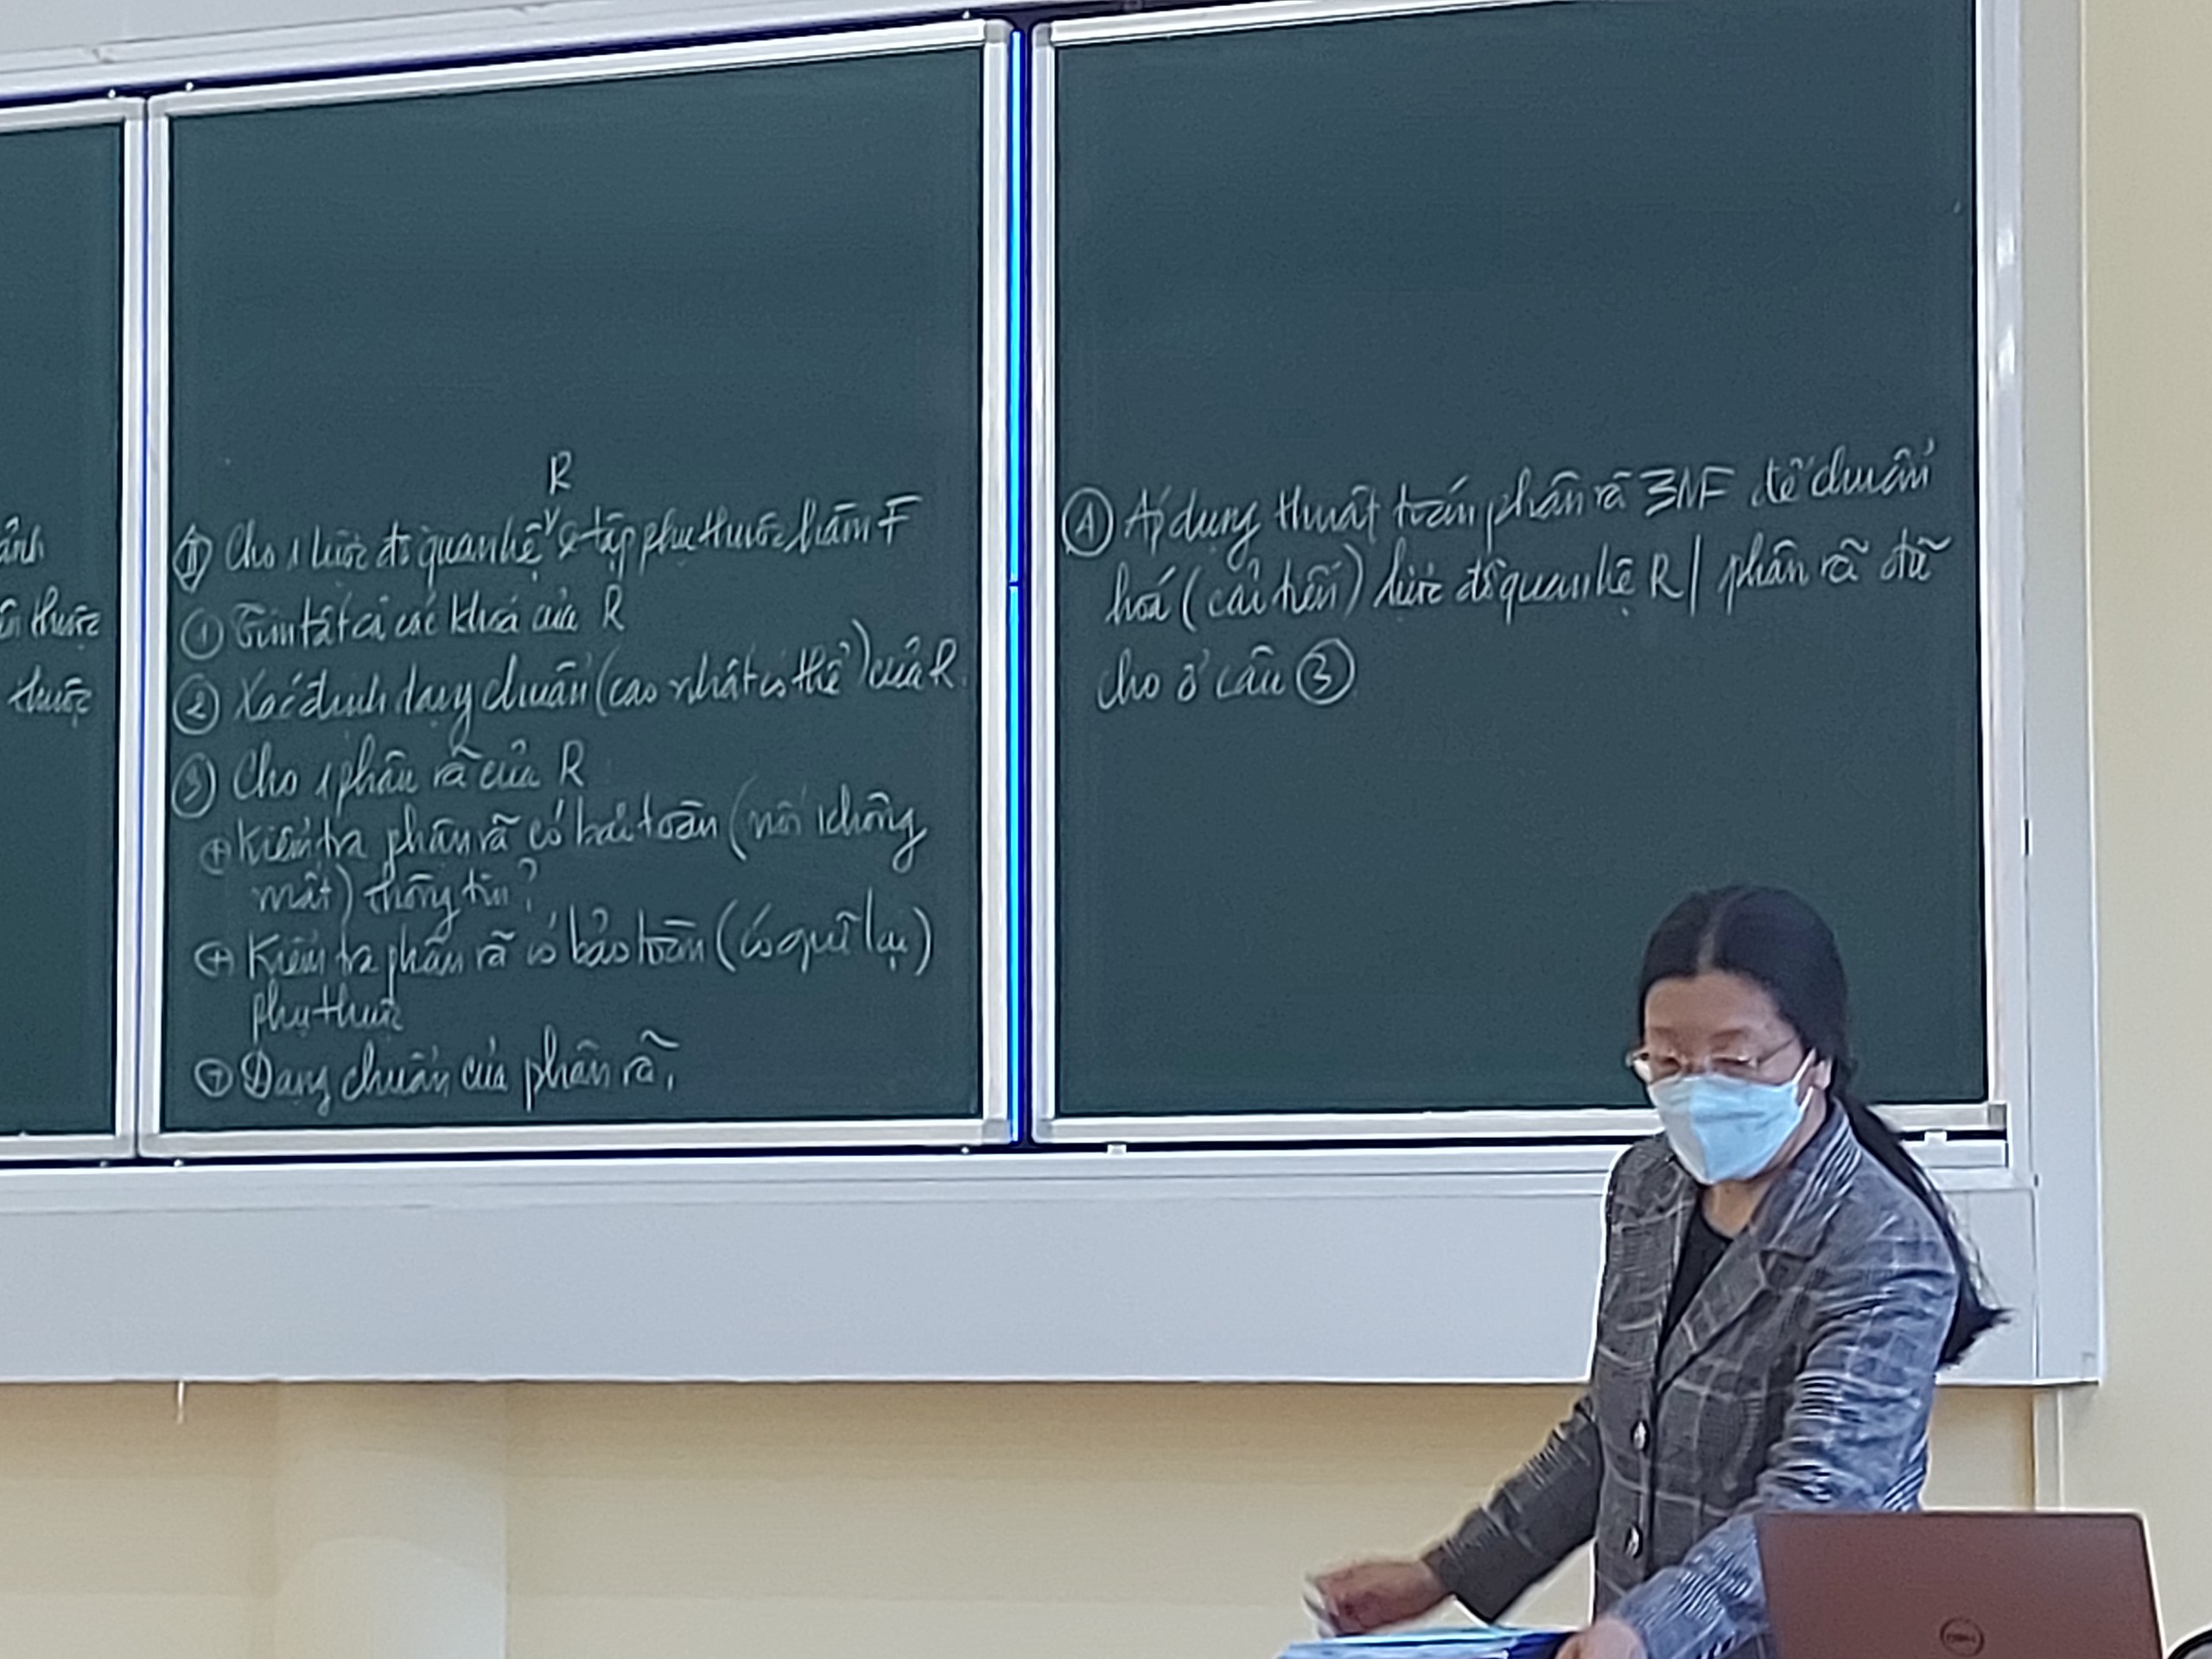 ảnh
thuộc
thuộc
R
II Cho 1 lược đồ quan hệ v & tập phụ thuộc hàm F
① Tìm tất cả các khoá của R
② Xác định dạng chuẩn (cao nhất có thể) của R.
③ Cho 1 phân rã của R
+ Kiểm tra phân rã có bảo toàn (nối không
mất) thông tin?
+ Kiểm tra phân rã có bảo toàn (có quĩ lại)
phụ thuộc
+ Dạng chuẩn của phân rã.
④ Áp dụng thuật toán phân rã 3NF để chuẩn
hoá (cải tiến) lược đồ quan hệ R / phân rã đã
cho ở câu ③
DELL